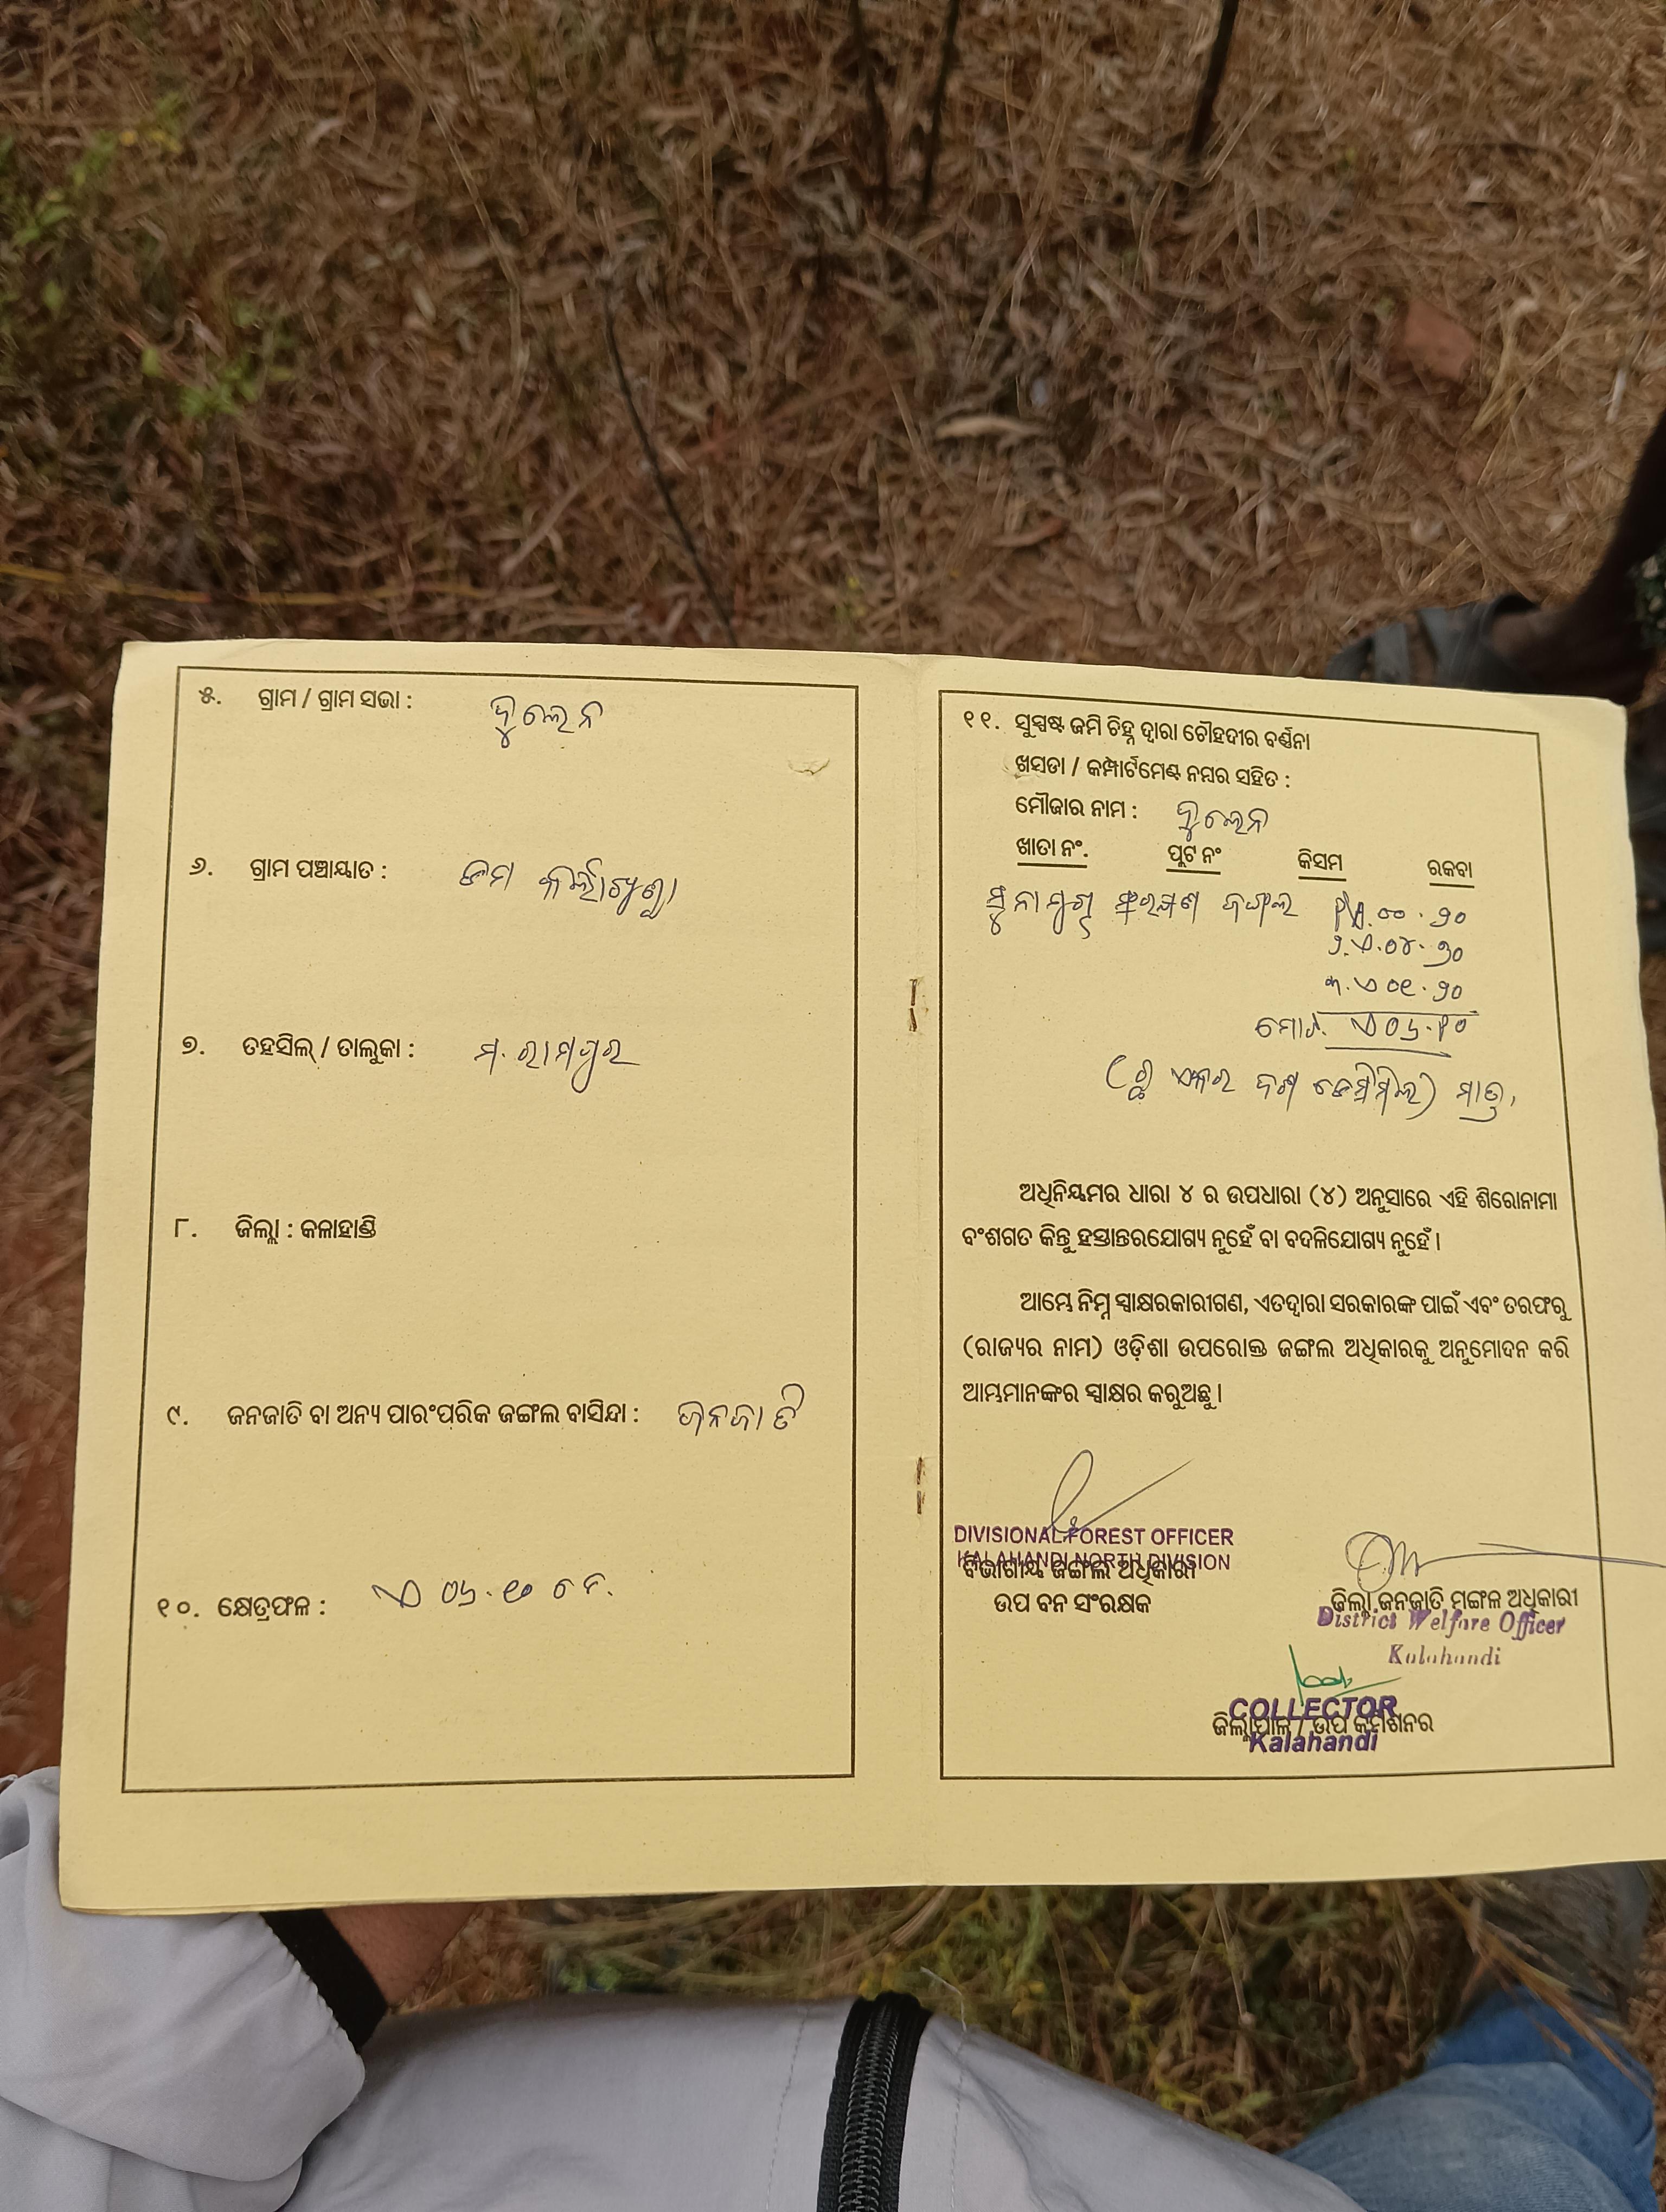 ୫. ଗ୍ରାମ / ଗ୍ରାମ ସଭା : ଦୁଲେନ
୬. ଗ୍ରାମ ପଞ୍ଚାୟାତ : ଡମ କର୍ଲାଖୁଣ୍ଟା
୭. ତହସିଲ୍ / ତାଲୁକା : ମ. ରାମପୁର
୮. ଜିଲ୍ଲା : କଳାହାଣ୍ଡି
୯. ଜନଜାତି ବା ଅନ୍ୟ ପାରଂପରିକ ଜଙ୍ଗଲ ବାସିନ୍ଦା : ଜନଜାତି
୧୦. କ୍ଷେତ୍ରଫଳ : ଏ ୦୬.୧୦ ଡେ.
୧୧. ସୁସ୍ପଷ୍ଟ ଜମି ଚିହ୍ନ ଦ୍ୱାରା ଚୌହଦୀର ବର୍ଣ୍ଣନା
ଖସଡା / କମ୍ପାର୍ଟମେଣ୍ଟ ନମ୍ବର ସହିତ :
ମୌଜାର ନାମ : ଦୁଲେନ
ଖାତା ନଂ. ପ୍ଲଟ ନଂ କିସମ ରକବା
ସଂରକ୍ଷଣ ଜଙ୍ଗଲ
୨.ଏ.୦୪.୨୦
୩.ଏ ୦୧.୨୦
ମୋଟ. ଏ ୦୬.୧୦
(ଛଅ ଏକର ଦଶ ଡେସିମିଲ) ମାତ୍ର,
ଅଧିନିୟମର ଧାରା ୪ ର ଉପଧାରା (୪) ଅନୁସାରେ ଏହି ଶିରୋନାମା
ବଂଶଗତ କିନ୍ତୁ ହସ୍ତାନ୍ତରଯୋଗ୍ୟ ନୁହେଁ ବା ବଦଳିଯୋଗ୍ୟ ନୁହେଁ ।
ଆମ୍ଭେ ନିମ୍ନ ସ୍ୱାକ୍ଷରକାରୀଗଣ, ଏତଦ୍ୱାରା ସରକାରଙ୍କ ପାଇଁ ଏବଂ ତରଫରୁ
(ରାଜ୍ୟର ନାମ) ଓଡ଼ିଶା ଉପରୋକ୍ତ ଜଙ୍ଗଲ ଅଧିକାରକୁ ଅନୁମୋଦନ କରି
ଆମ୍ଭମାନଙ୍କର ସ୍ୱାକ୍ଷର କରୁଅଛୁ ।
DIVISIONAL FOREST OFFICER
KALAHANDI NORTH DIVISION
ବିଭାଗୀୟ ଜଙ୍ଗଲ ଅଧିକାରୀ
ଉପ ବନ ସଂରକ୍ଷକ
ଜିଲ୍ଲା ଜନଜାତି ମଙ୍ଗଳ ଅଧିକାରୀ
District Welfare Officer
Kalahandi
COLLECTOR
ଜିଲ୍ଲାପାଳ / ଉପ କମିଶନର
Kalahandi